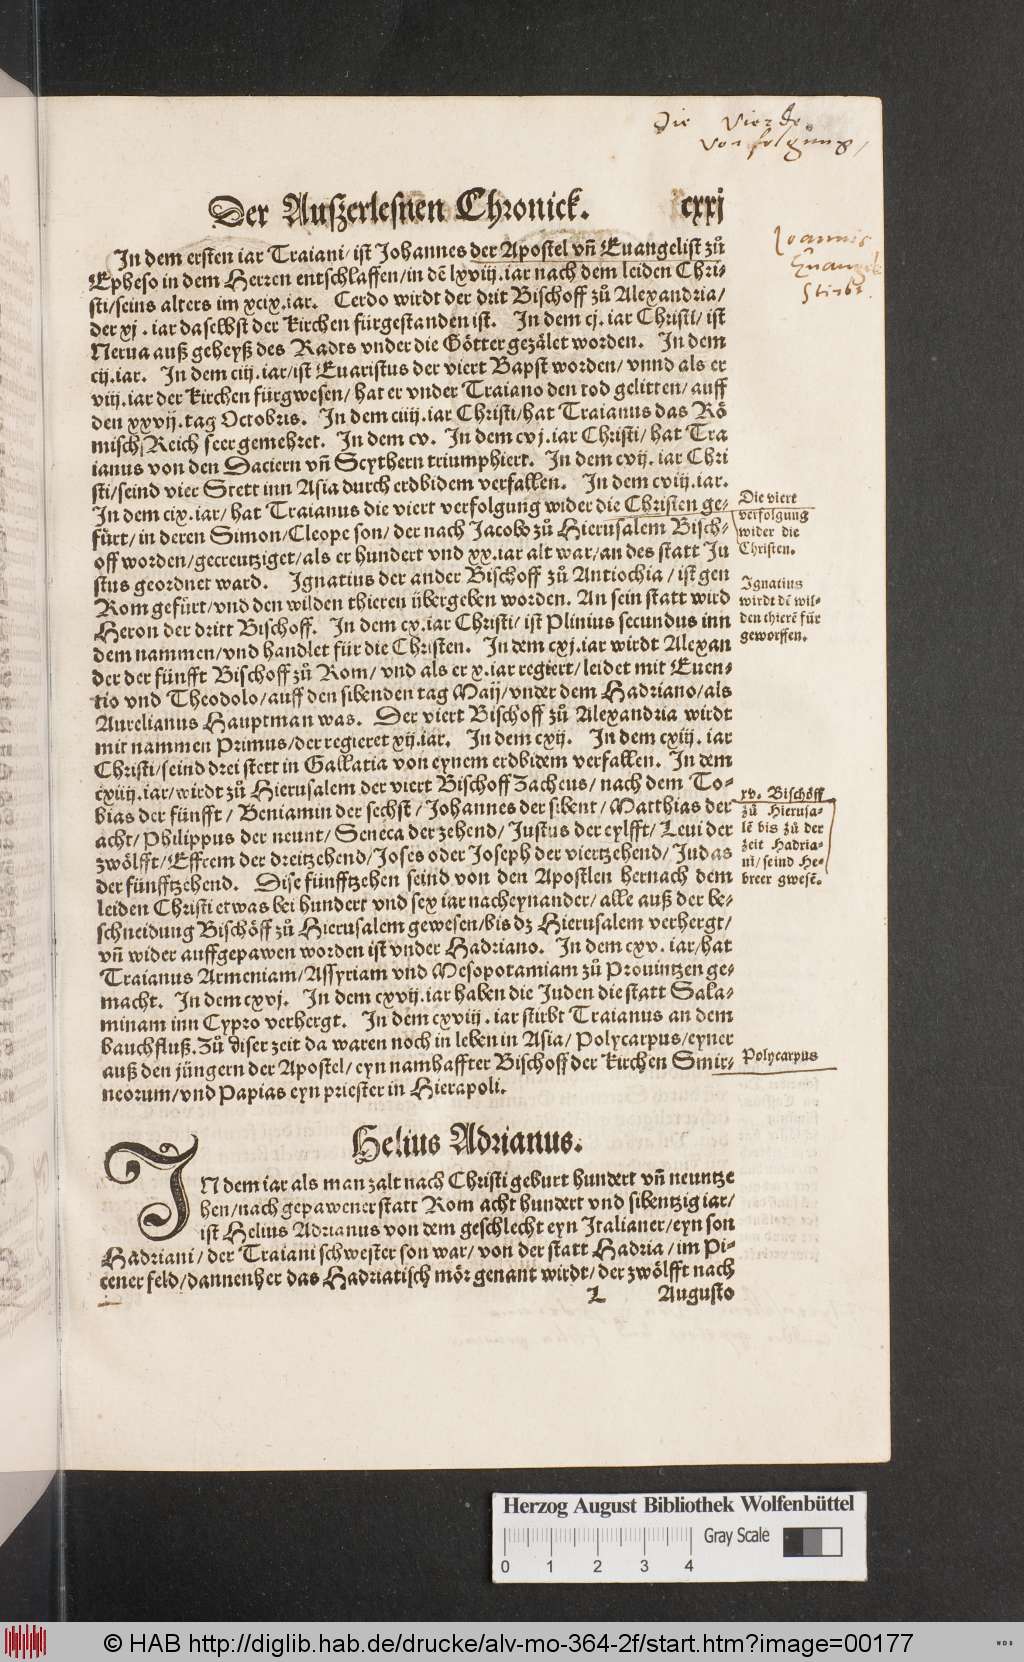 Die Vierde
Vorfolgung,
Der Auszerlesnen Chronick. cxxj
Joannis
Euangeli
Stirbt.
In dem ersten iar Traiani/ ist Johannes der Apostel vn̄ Euangelist zů
Epheso in dem Herren entschlaffen/ in dẽ lxviij. iar nach dem leiden Chri-
sti/ seins alters im xcix. iar. Cerdo wirdt der drit Bischoff zů Alexandria/
der xj. iar daselbst der kirchen fürgestanden ist. In dem cj. iar Christi/ ist
Nerua auß geheyß des Radts vnder die Götter gezälet worden. In dem
cij. iar. In dem ciij. iar/ ist Euaristus der viert Bapst worden/ vnnd als er
viij. iar der kirchen fürgwesen/ hat er vnder Traiano den tod gelitten/ auff
den xxvij. tag Octobris. In dem ciiij. iar Christi/ hat Traianus das Rö
misch Reich seer gemehret. In dem cv. In dem cvj. iar Christi/ hat Tra
ianus von den Daciern vn̄ Scythern triumphiert. In dem cvij. iar Chri
sti/ seind vier Stett inn Asia durch erdbidem verfallen. In dem cviij. iar.
In dem cix. iar/ hat Traianus die viert verfolgung wider die Christen ge-
fürt/ in deren Simon/ Cleope son/ der nach Jacobo zů Hierusalem Bisch-
off worden/ gecreutziget/ als er hundert vnd xx. iar alt war/ an des statt Ju
stus geordnet ward. Ignatius der ander Bischoff zů Antiochia/ ist gen
Rom gefürt/ vnd den wilden thieren übergeben worden. An sein statt wird
Heron der dritt Bischoff. In dem cx. iar Christi/ ist Plinius secundus inn
dem nammen/ vnd handlet für die Christen. In dem cxj. iar wirdt Alexan
der der fünfft Bischoff zů Rom/ vnd als er x. iar regiert/ leidet mit Euen-
tio vnd Theodolo/ auff den sibenden tag Maij/ vnder dem Hadriano/ als
Aurelianus Hauptman was. Der viert Bischoff zů Alexandria wirdt
mit nammen Primus/ der regieret xij. iar. In dem cxij. In dem cxiij. iar
Christi/ seind drei stett in Gallatia von eynem erdbidem verfallen. In dem
cxiiij. iar/ wirdt zů Hierusalem der viert Bischoff Zacheus/ nach dem To-
bias der fünfft/ Beniamin der sechst/ Johannes der sibent/ Matthias der
acht/ Philippus der neunt/ Seneca der zehend/ Justus der eylfft/ Leui der
zwölfft/ Effrem der dreitzehend/ Joses oder Joseph der viertzehend/ Judas
der fünfftzehend. Dise fünfftzehen seind von den Apostlen hernach dem
leiden Christi etwas bei hundert vnd sex iar nacheynander/ alle auß der be-
schneidung Bischöff zů Hierusalem gewesen/ bis dz Hierusalem verhergt/
vn̄ wider auffgepawen worden ist vnder Hadriano. In dem cxv. iar/ hat
Traianus Armeniam/ Assyriam vnd Mesopotamiam zů Prouintzen ge-
macht. In dem cxvj. In dem cxvij. iar haben die Juden die statt Sala-
minam inn Cypro verhergt. In dem cxviij. iar stirbt Traianus an dem
bauchfluß. Zů diser zeit da waren noch in leben in Asia/ Polycarpus/ eyner
auß den jüngern der Apostel/ eyn namhaffter Bischoff der kirchen Smir-
neorum/ vnd Papias eyn priester in Hierapoli.
Die viert
verfolgung
wider die
Christen.
Ignatius
wirdt dẽ wil-
den thierẽ für
geworffen.
xv. Bischöff
zů Hierusa-
lẽ bis zů der
zeit Hadria-
ni/ seind He-
breer gwesẽ.
Polycarpus
Helius Adrianus.
IN dem iar als man zalt nach Christi geburt hundert vn̄ neuntze
hen/ nach gepawener statt Rom acht hundert vnd sibentzig iar/
ist Helius Adrianus von dem geschlecht eyn Italianer/ eyn son
Hadriani/ der Traiani schwester son war/ von der statt Hadria/ im Pi-
cener feld/ dannenher das Hadriatisch mör genant wirdt/ der zwölfft nach
L Augusto
Herzog August Bibliothek Wolfenbüttel
0 1 2 3 4
Gray Scale
© HAB http://diglib.hab.de/drucke/alv-mo-364-2f/start.htm?image=00177